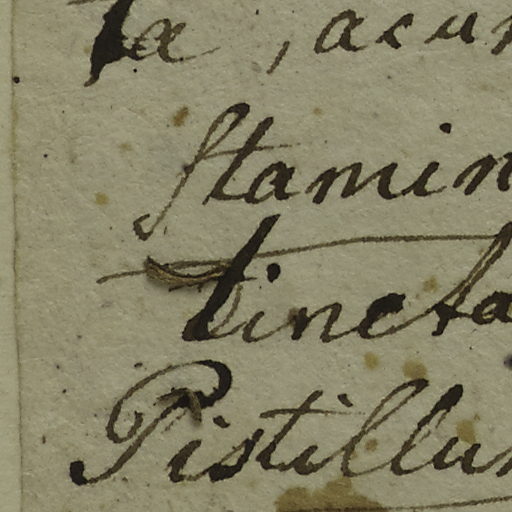 ta, acu
Stamin
tincta
Pistillu